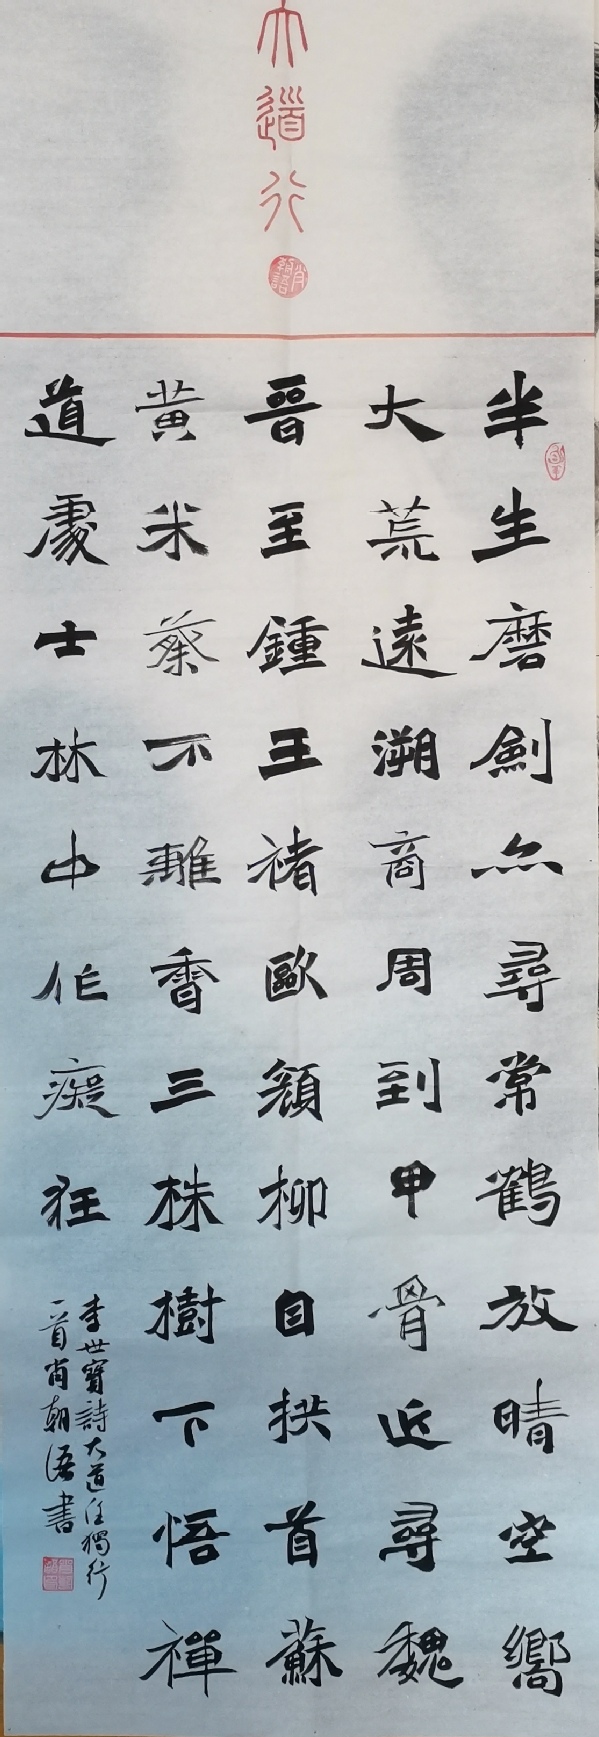 大道行
半生磨劍亦尋常鶴放晴空嚮
大荒遠溯商周到甲骨近尋魏
晉至鍾王褚歐顏柳自拱首蘇
黃米蔡不離香三株樹下悟禪
道處士林中作癡狂
李世寶詩大道任獨行
一首肖朝書